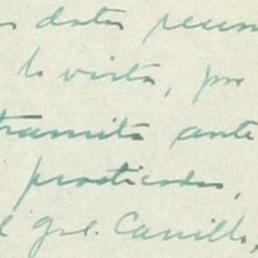 datos
la vista, por
tramita ante
practicadas,
Gral. Carrillo,